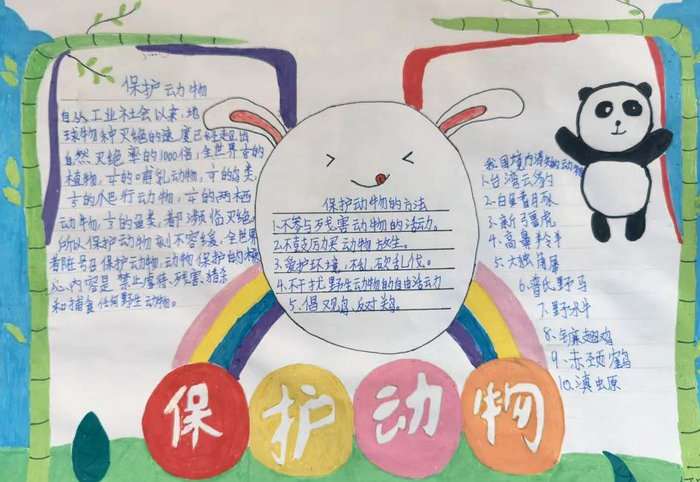 保护动物
自从工业社会以来,地
球物种灭绝的速度已经超出
自然灭绝率的1000倍,全世界
植物, 哺乳动物, 鸟类,
爬行动物, 两栖
动物, 鱼类,都濒临灭绝。
所以保护动物刻不容缓,全世界
都在号召保护动物,动物保护的核
心内容是禁止虐待、残害、猎杀
和捕食任何野生动物。
保护动物的方法
1.不参与残害动物的活动。
2.不鼓历买动物放生。
3.爱护环境,不乱砍乱伐。
4.不干扰野生动物的自由活动
5、
我国境内消失的动物
1.台湾云豹
2.白
3.新疆虎
4.高鼻羚羊
5.大独角犀
6.普氏野马
7.野水牛
8.镰翅鸡
9.赤颈鹤
10.滇
保护动物